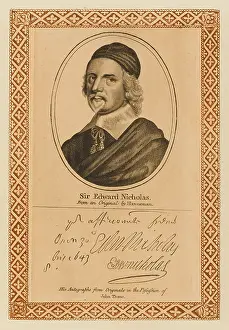 Sir Edward Nicholas.
From an Original by Hanneman.
yr affecionate frend
Edw. Nicholas
1647
Edw Nicholas
His Autographs from Originals in the Possession of
John Thane.